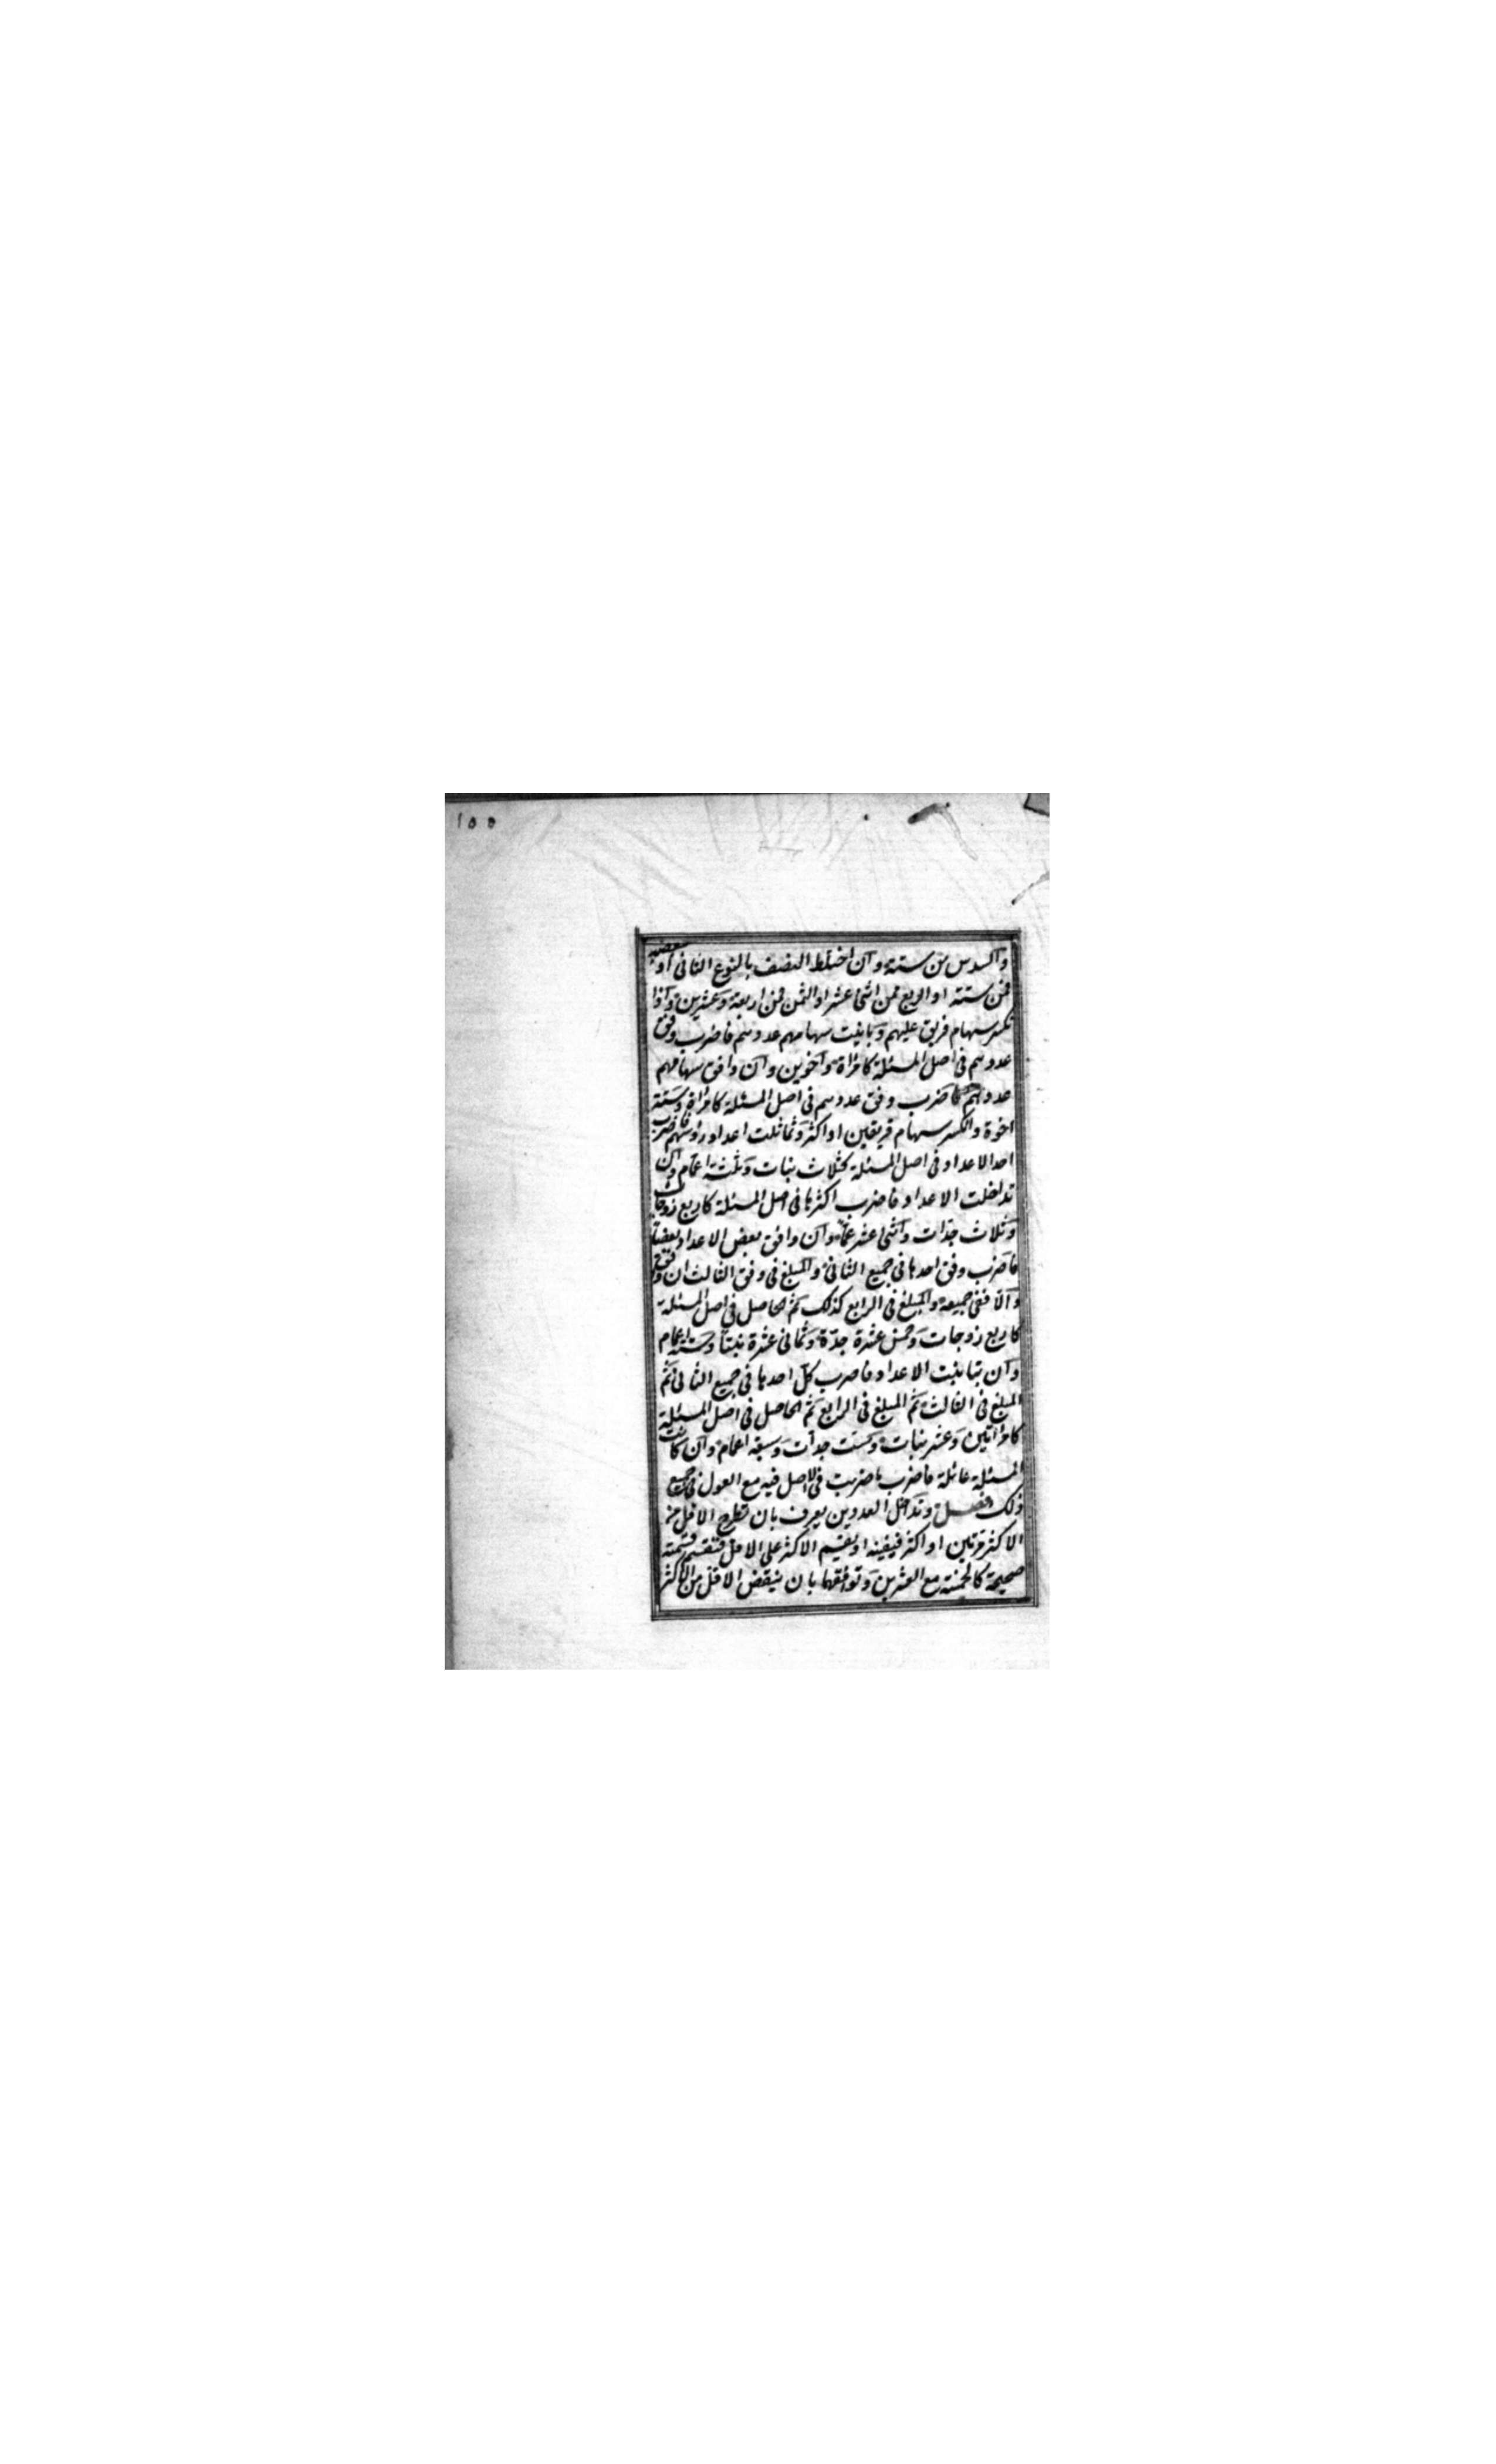 ١٥٥
والسدس من ستة وان اختلط النصف بالنوع الثانى او ببعضه
فمن ستة او الربع فمن اثنى عشر او الثمن فمن اربعة وعشرين واذا
انكسر سهام فريق عليهم وباينت سهامهم عددهم فاضرب وفق
عددهم فى اصل المسئلة كامراة واخوين وان وافق سهامهم
عددهم فاضرب وفق عددهم فى اصل المسئلة كامراة وستة
اخوة وانكسر سهام فريقين او اكثر وتماثلت اعداد رؤسهم فاضرب
احد الاعداد فى اصل المسئلة كثلاث بنات وثلثة اعمام وان
تداخلت الاعداد فاضرب اكثرها فى اصل المسئلة كاربع زوجات
وثلاث جدات واثنى عشر عما وان وافق بعض الاعداد بعضا
فاضرب وفق احدها فى جميع الثانى والمبلغ فى وفق الثالث ان وافق
والا ففى جميعه والمبلغ فى الرابع كذلك ثم الحاصل فى اصل المسئلة
كاربع زوجات وخمس عشرة جدة وثمانى عشرة بنتا وستة اعمام
وان تباينت الاعداد فاضرب كل احدها فى جميع الثانى ثم
المبلغ فى الثالث ثم المبلغ فى الرابع ثم الحاصل فى اصل المسئلة
كامراتين وعشر بنات وست جدات وسبعة اعمام وان كانت
المسئلة عائلة فاضرب ما ضربت فى الاصل فيه مع العول فى جميع
ذلك فصل وتداخل العددين يعرف بان تطرح الاقل من
الاكثر مرتين او اكثر فيفنيه او يقسم الاكثر على الاقل فتنقسم قسمة
صحيحة كالخمسة مع العشرين وتوافقهما بان ينقص الاقل من الاكثر